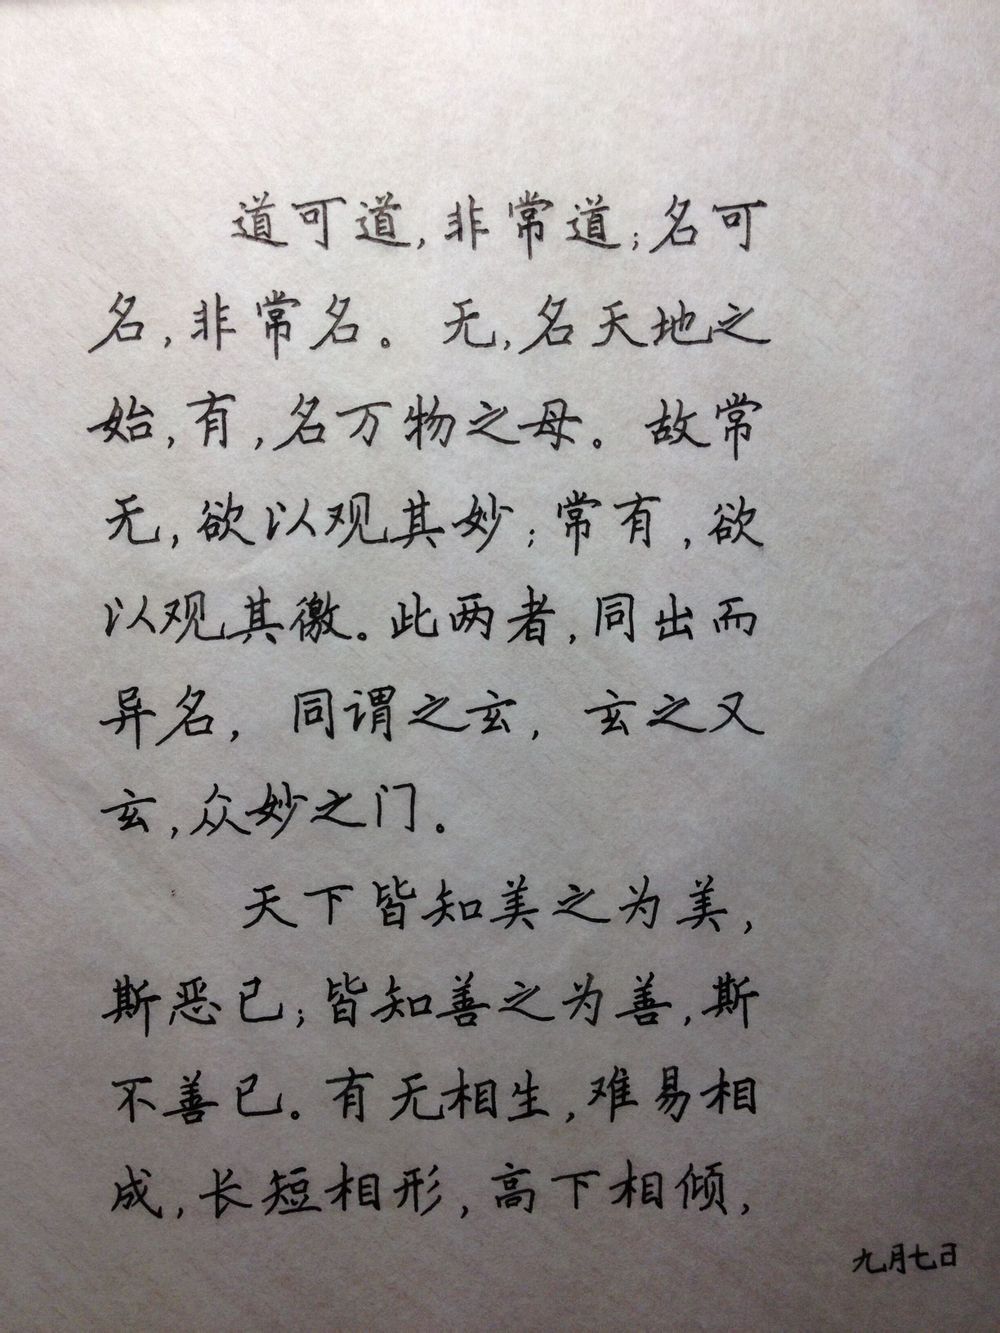 道可道,非常道;名可
名,非常名。无,名天地之
始,有,名万物之母。故常
无,欲以观其妙;常有,欲
以观其徼。此两者,同出而
异名,同谓之玄,玄之又
玄,众妙之门。
天下皆知美之为美,
斯恶已;皆知善之为善,斯
不善已。有无相生,难易相
成,长短相形,高下相倾,
九月七日